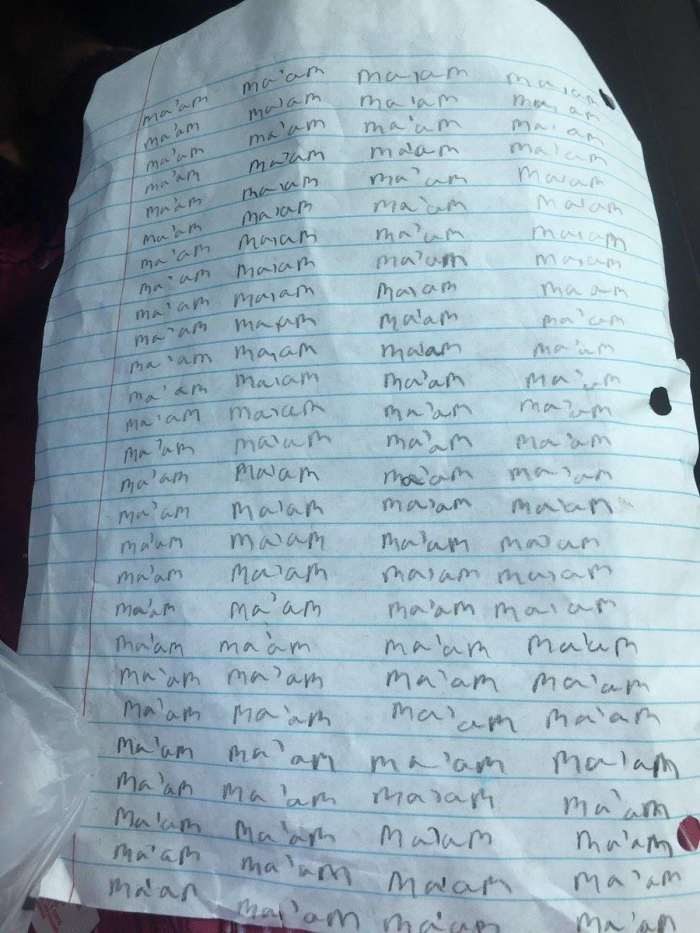 ma'am ma'am ma'am ma'am
ma'am ma'am ma'am ma'am
ma'am ma'am ma'am ma'am
ma'am ma'am ma'am ma'am
ma'am ma'am ma'am ma'am
ma'am ma'am ma'am ma'am
ma'am ma'am ma'am ma'am
ma'am ma'am ma'am ma'am
ma'am ma'am ma'am ma'am
ma'am ma'am ma'am ma'am
ma'am ma'am ma'am ma'am
ma'am ma'am ma'am ma'am
ma'am ma'am ma'am ma'am
ma'am ma'am ma'am ma'am
ma'am ma'am ma'am ma'am
ma'am ma'am ma'am ma'am
ma'am ma'am ma'am ma'am
ma'am ma'am ma'am ma'am
ma'am ma'am ma'am ma'am
ma'am ma'am ma'am ma'am
ma'am ma'am ma'am ma'am
ma'am ma'am ma'am ma'am
ma'am ma'am ma'am ma'am
ma'am ma'am ma'am ma'am
ma'am ma'am ma'am ma'am
ma'am ma'am ma'am ma'am
ma'an ma'am ma'am ma'am